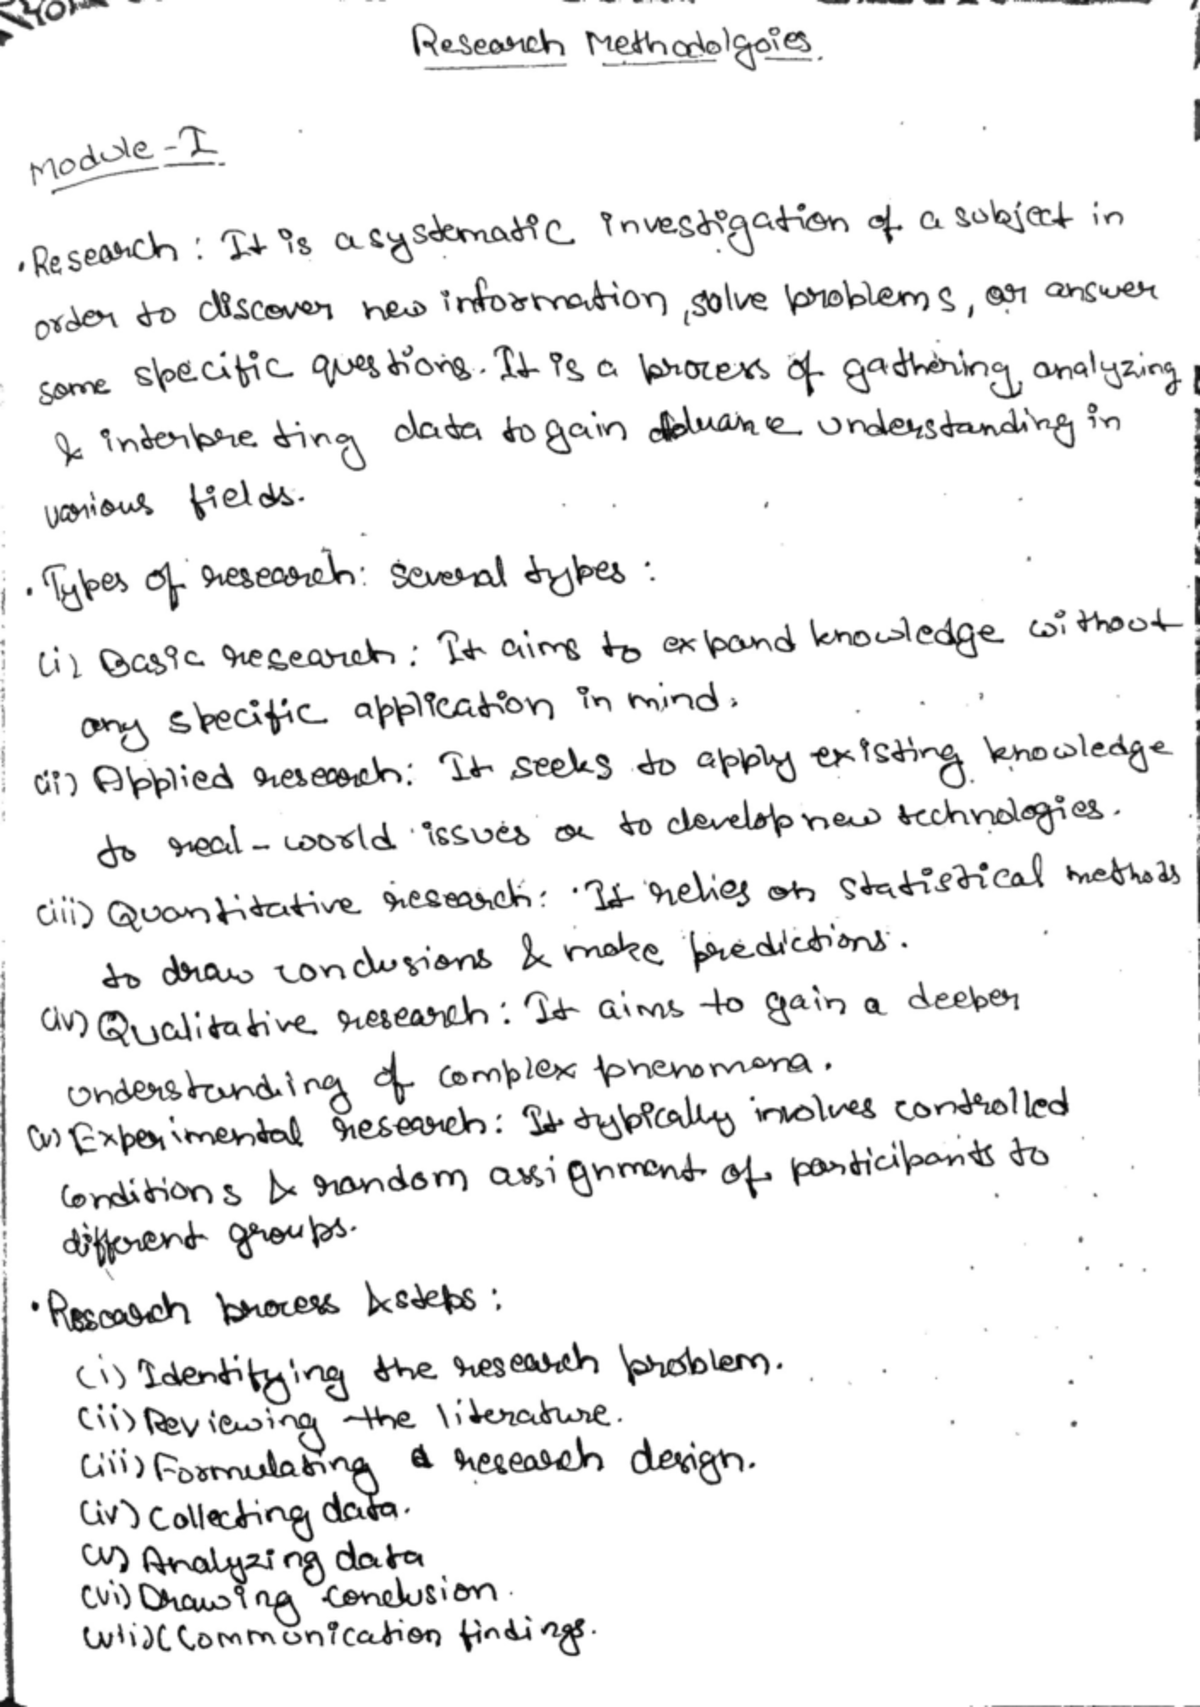 Research Methodolgoies.
Module-I
• Research: It is a systematic investigation of a subject in
order to discover new information, solve problems, or answer
some specific questions. It is a process of gathering, analyzing
& interpreting data to gain advance understanding in
various fields.
• Types of research: several types:
(i) Basic research: It aims to expand knowledge without
any specific application in mind.
(ii) Applied research: It seeks to apply existing knowledge
to real-world issues or to develop new technologies.
(iii) Quantitative research: It relies on statistical methods
to draw conclusions & make predictions.
(iv) Qualitative research: It aims to gain a deeper
understanding of complex phenomena.
(v) Experimental research: It typically involves controlled
conditions & random assignment of participants to
different groups.
• Research process & steps:
(i) Identifying the research problem.
(ii) Reviewing the literature.
(iii) Formulating a research design.
(iv) Collecting data.
(v) Analyzing data
(vi) Drawing conclusion.
(vii) Communication findings.